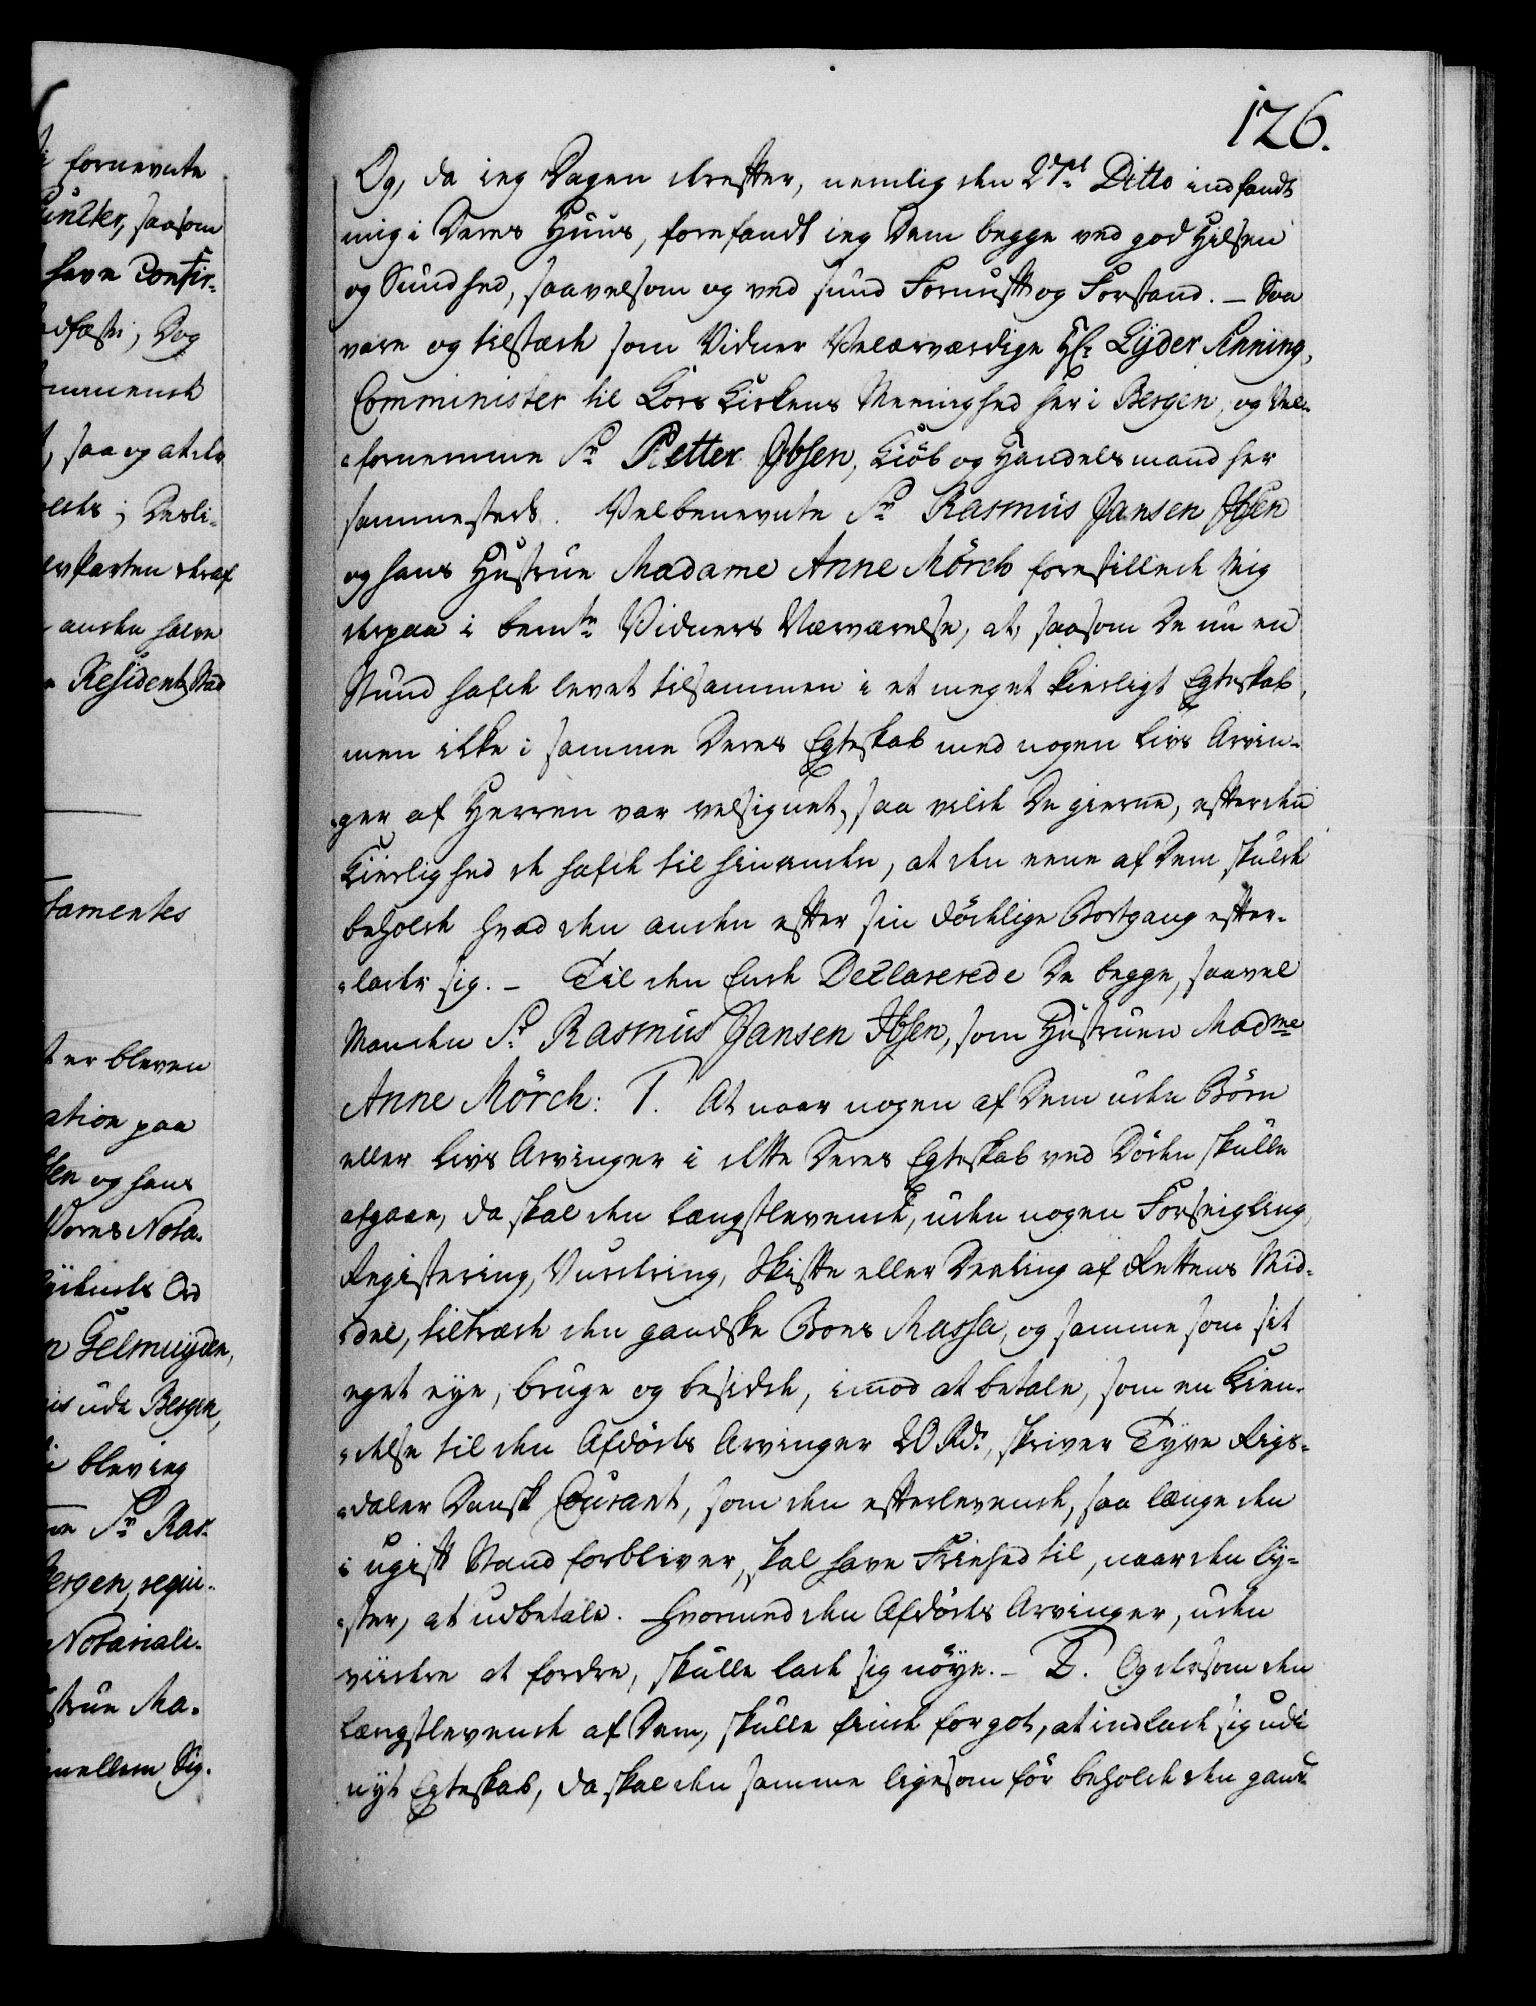 126.
Og, da ieg Dagen derefter, nemlig den 27de Ditto indfandt
mig i Deres Huus, forefandt ieg Dem begge ved god Helsen
og Sundhed, saavelsom og ved sund Fornuft og Forstand. – Saa
vare og tilstæde som Vidner Velærværdige Hr. Lyder Anning,
Comminister til Kors Kirkens Meenighed her i Bergen, og Vel-
fornemme Sr. Petter Ibsen, Kiøb og Handelsmand her
sammesteds. Velbenevnte Sr. Rasmus Jansen Ibsen
og hans Hustrue Madame Anne Mörch forestillede Mig
derpaa i bemte. Vidners Nærværelse, at, saasom De nu en
Stund hafde levet tilsammen i et meget kierligt Egteskab,
men ikke i samme Deres Egteskab med nogen Livs Arvin-
ger af Herren var velsignet, saa vilde De gierne, efter den
Kierlighed de hafde til hinanden, at den eene af Dem skulde
beholde hvad den anden efter sin dödelige Bortgang efter-
lader sig. – Til den Ende Declarerede De begge, saavel
Manden Sr. Rasmus Jansen Ibsen, som Hustruen Madme
Anne Mörch: 1. At naar nogen af Dem uden Børn
eller Livs Arvinger i dette Deres Egteskab ved Döden skulle
afgaae, da skal den længstlevende, uden nogen Forseigling,
Registering, Vurdering, Skifte eller Deeling af Rettens Mid-
del, tiltræde den gandske Boes Massa, og samme som sit
eget eye, bruge og besidde, imod at betale, som en Kien-
delse til den Afdödes Arvinger 20 Rdr., skriver Tyve Rigs-
daler Dansk Courant, som den efterlevende, saa længe den
i ugift Stand forbliver, skal have Friehed til, naar den ly-
ster, at udbetale. Hvormed den Afdödes Arvinger, uden
viidere at fordre, skulle lade sig nöye. – 2. Og dersom den
længstlevende af Dem, skulle finde for got, at indlade sig udi
nyt Egteskab, da skal den samme ligesom för beholde den gand-